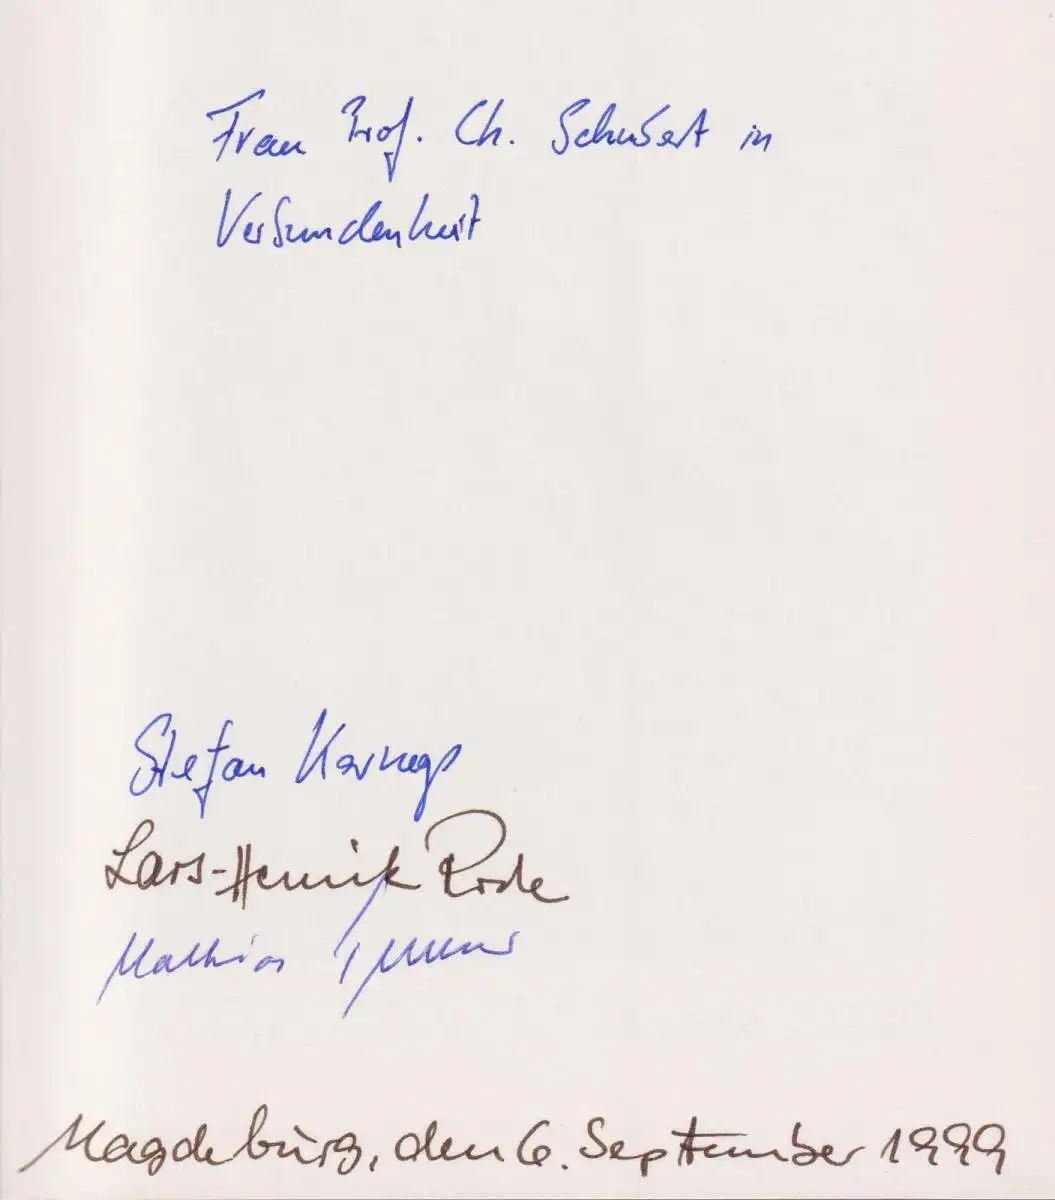 Frau Prof. Ch. Schubert in
Verbundenheit
Stefan
Lars-Henrik Rode
Mathias
Magdeburg, den 6. September 1999